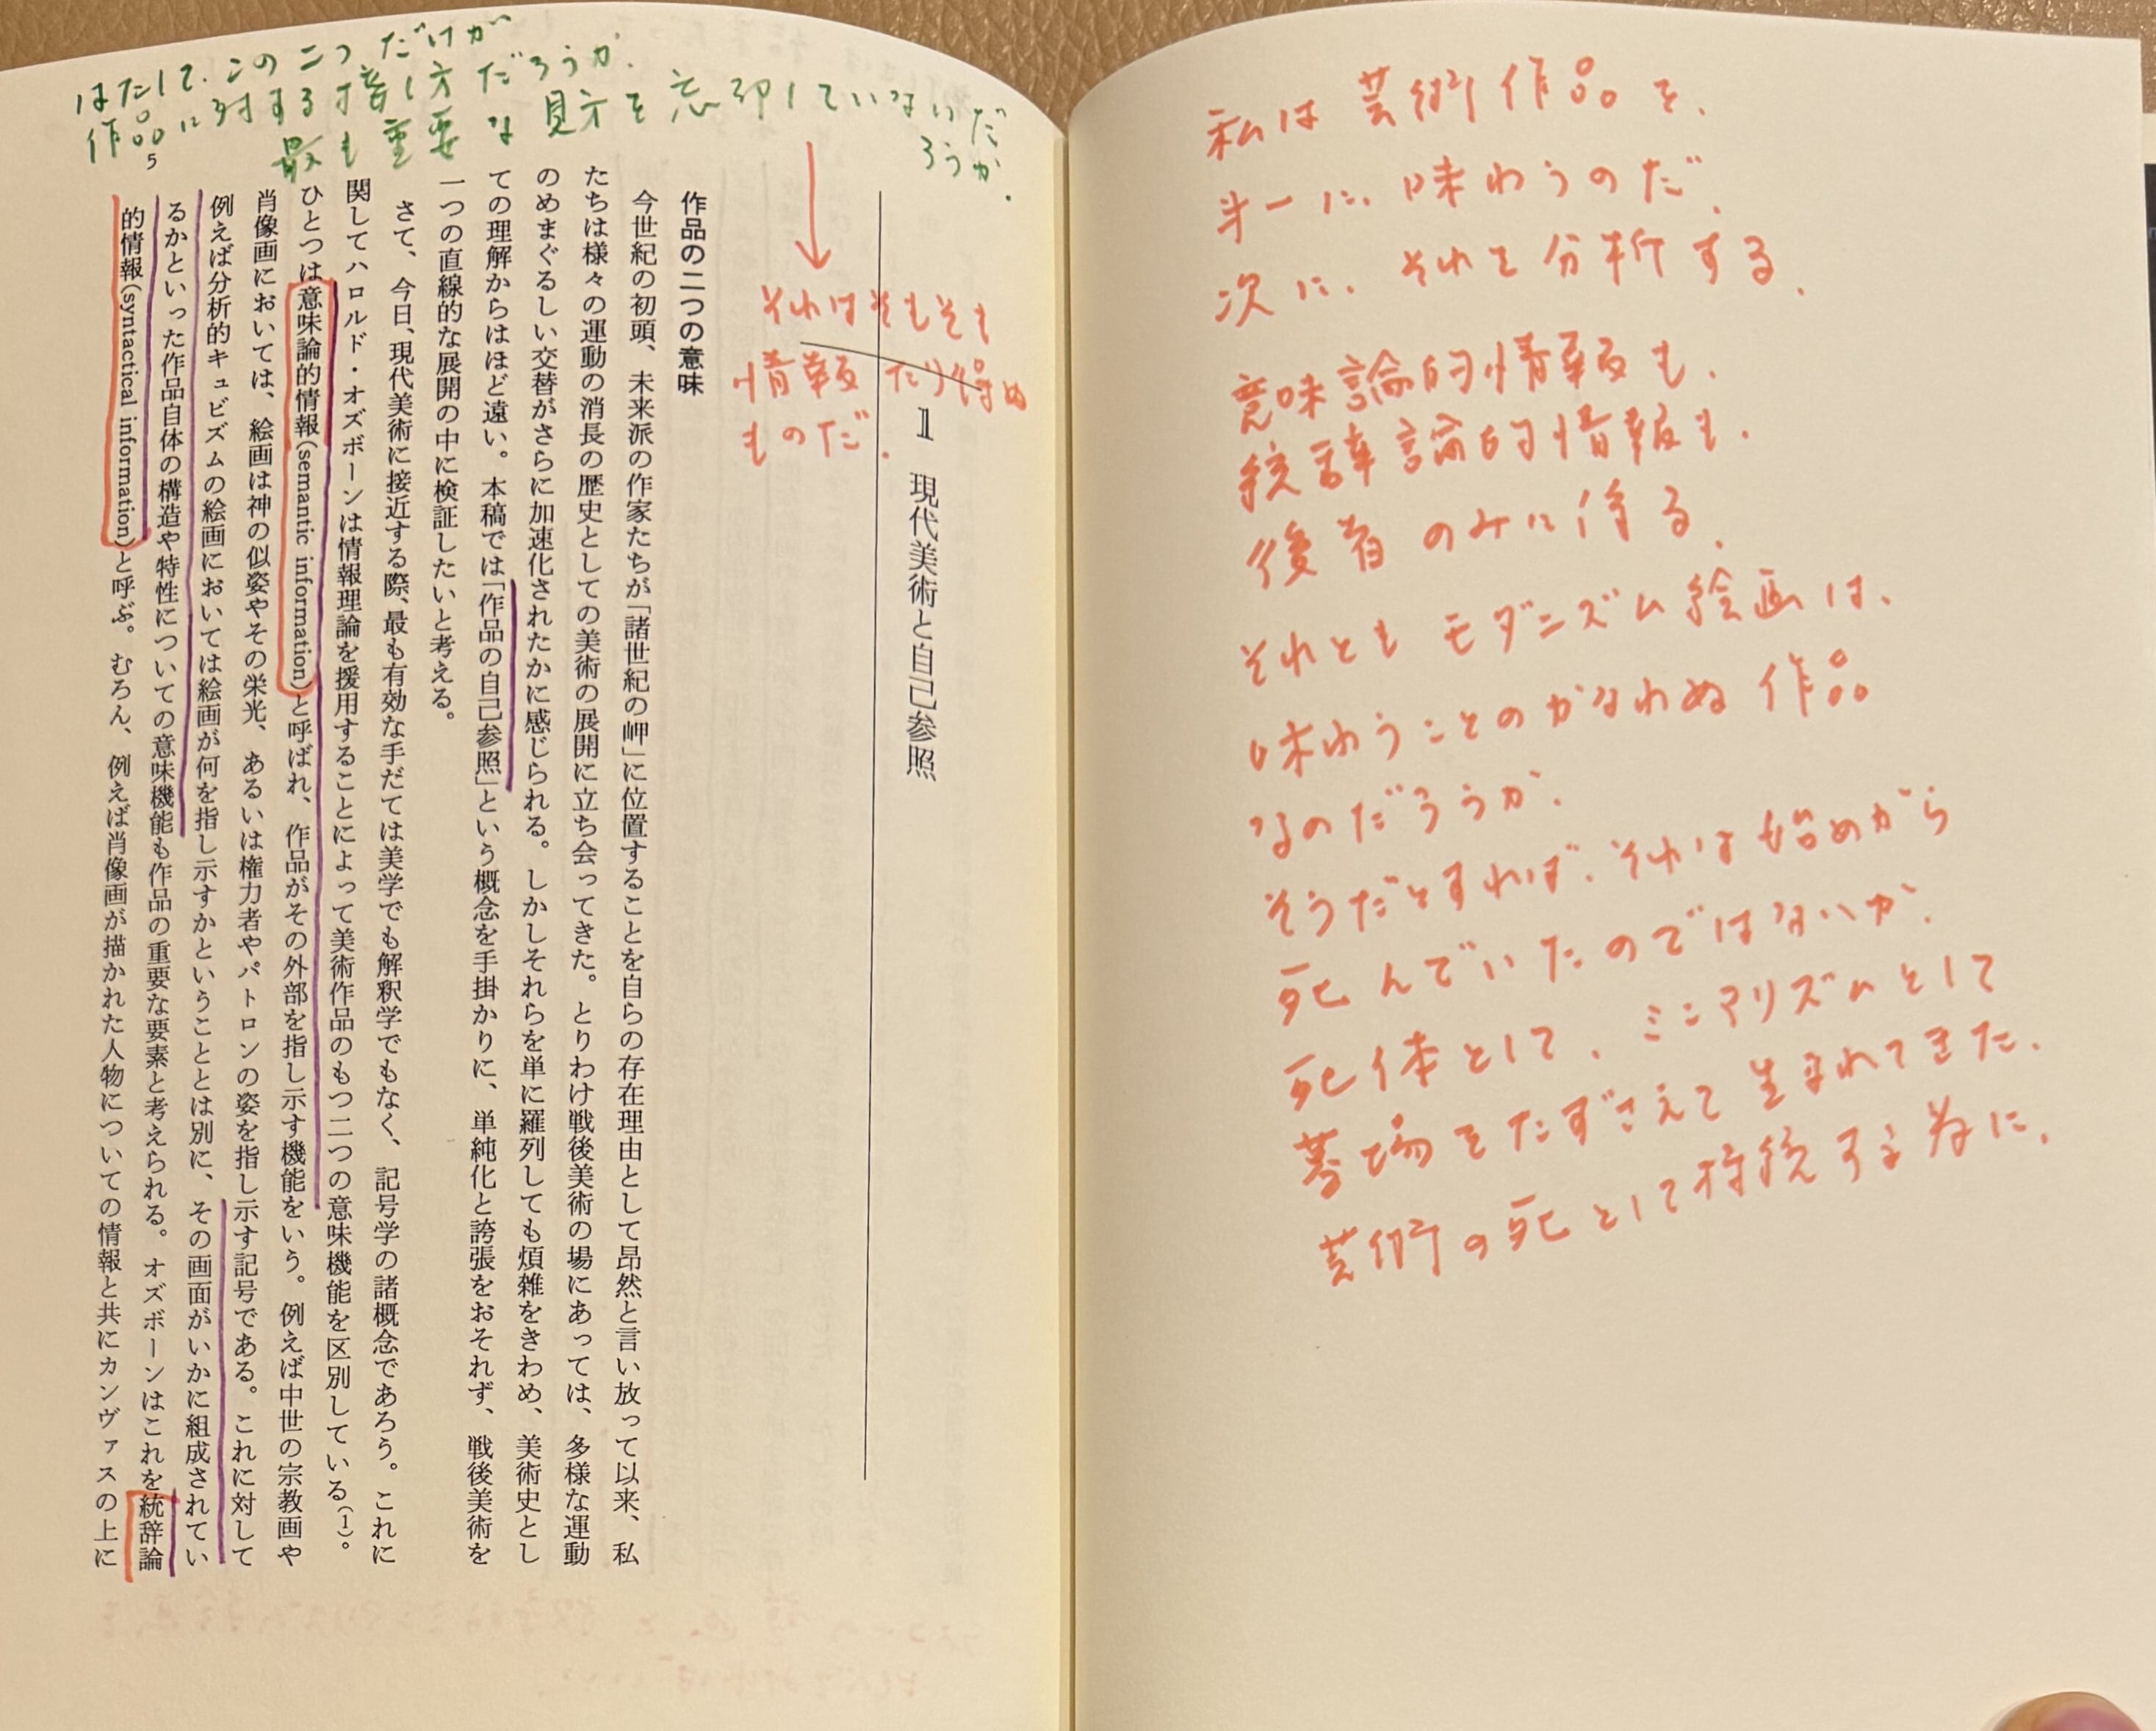 はたして、この二つだけが
作品に対する接し方だろうか.
最も重要な見方を忘却していないだ
ろうか.
それはそもそも
情報たり得ぬ
ものだ.
1 現代美術と自己参照
作品の二つの意味
今世紀の初頭、未来派の作家たちが「諸世紀の岬」に位置することを自らの存在理由として昂然と言い放って以来、私
たちは様々の運動の消長の歴史としての美術の展開に立ち会ってきた。とりわけ戦後美術の場にあっては、多様な運動
のめまぐるしい交替がさらに加速化されたかに感じられる。しかしそれらを単に羅列しても煩雑をきわめ、美術史とし
ての理解からはほど遠い。本稿では「作品の自己参照」という概念を手掛かりに、単純化と誇張をおそれず、戦後美術を
一つの直線的な展開の中に検証したいと考える。
さて、今日、現代美術に接近する際、最も有効な手だては美学でも解釈学でもなく、記号学の諸概念であろう。これに
関してハロルド・オズボーンは情報理論を援用することによって美術作品のもつ二つの意味機能を区別している(1)。
ひとつは意味論的情報(semantic information)と呼ばれ、作品がその外部を指し示す機能をいう。例えば中世の宗教画や
肖像画においては、絵画は神の似姿やその栄光、あるいは権力者やパトロンの姿を指し示す記号である。これに対して
例えば分析的キュビズムの絵画においては絵画が何を指し示すかということとは別に、その画面がいかに組成されてい
るかといった作品自体の構造や特性についての意味機能も作品の重要な要素と考えられる。オズボーンはこれを統辞論
的情報(syntactical information)と呼ぶ。むろん、例えば肖像画が描かれた人物についての情報と共にカンヴァスの上に
5
私は芸術作品を、
才一に、味わうのだ.
次に、それを分析する.
意味論的情報も.
統辞論的情報も.
後者のみに侍る.
それともモダニズム絵画は、
味わうことのかなわぬ作品
なのだろうか.
そうだとすれば、それは始めから
死んでいたのではないか.
死体として、ミニマリズムとして
墓場をたずさえて生まれてきた.
芸術の死として持続する為に.